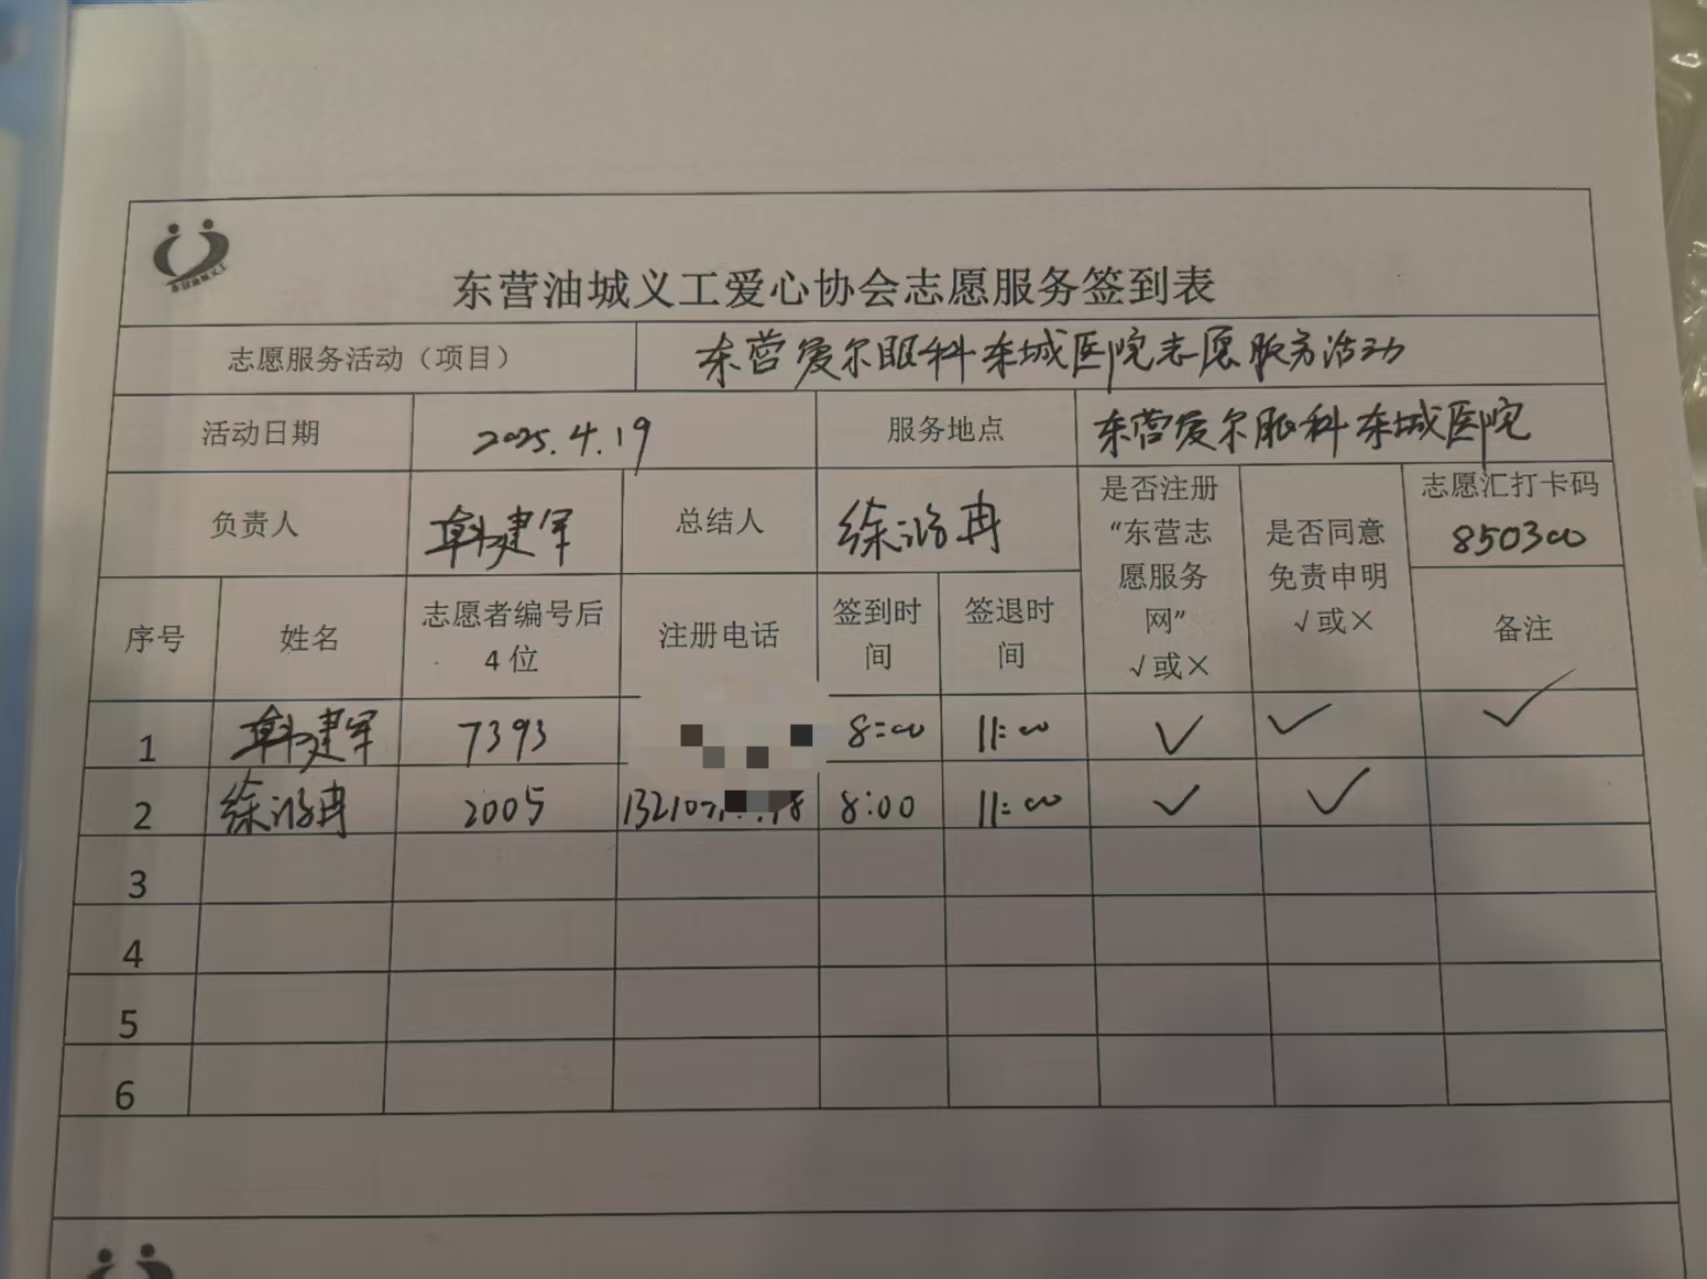 东营油城义工
东营油城义工爱心协会志愿服务签到表
志愿服务活动（项目） 东营爱尔眼科东城医院志愿服务活动
活动日期 2025.4.19 服务地点 东营爱尔眼科东城医院
负责人 韩建军 总结人 徐冶冉 是否注册“东营志愿服务网”√或× 是否同意免责申明√或× 志愿汇打卡码 850300
序号 姓名 志愿者编号后4位 注册电话 签到时间 签退时间 备注
1 韩建军 7393 8:00 11:00 ✓ ✓ ✓
2 徐冶冉 2005 8:00 11:00 ✓ ✓
3
4
5
6